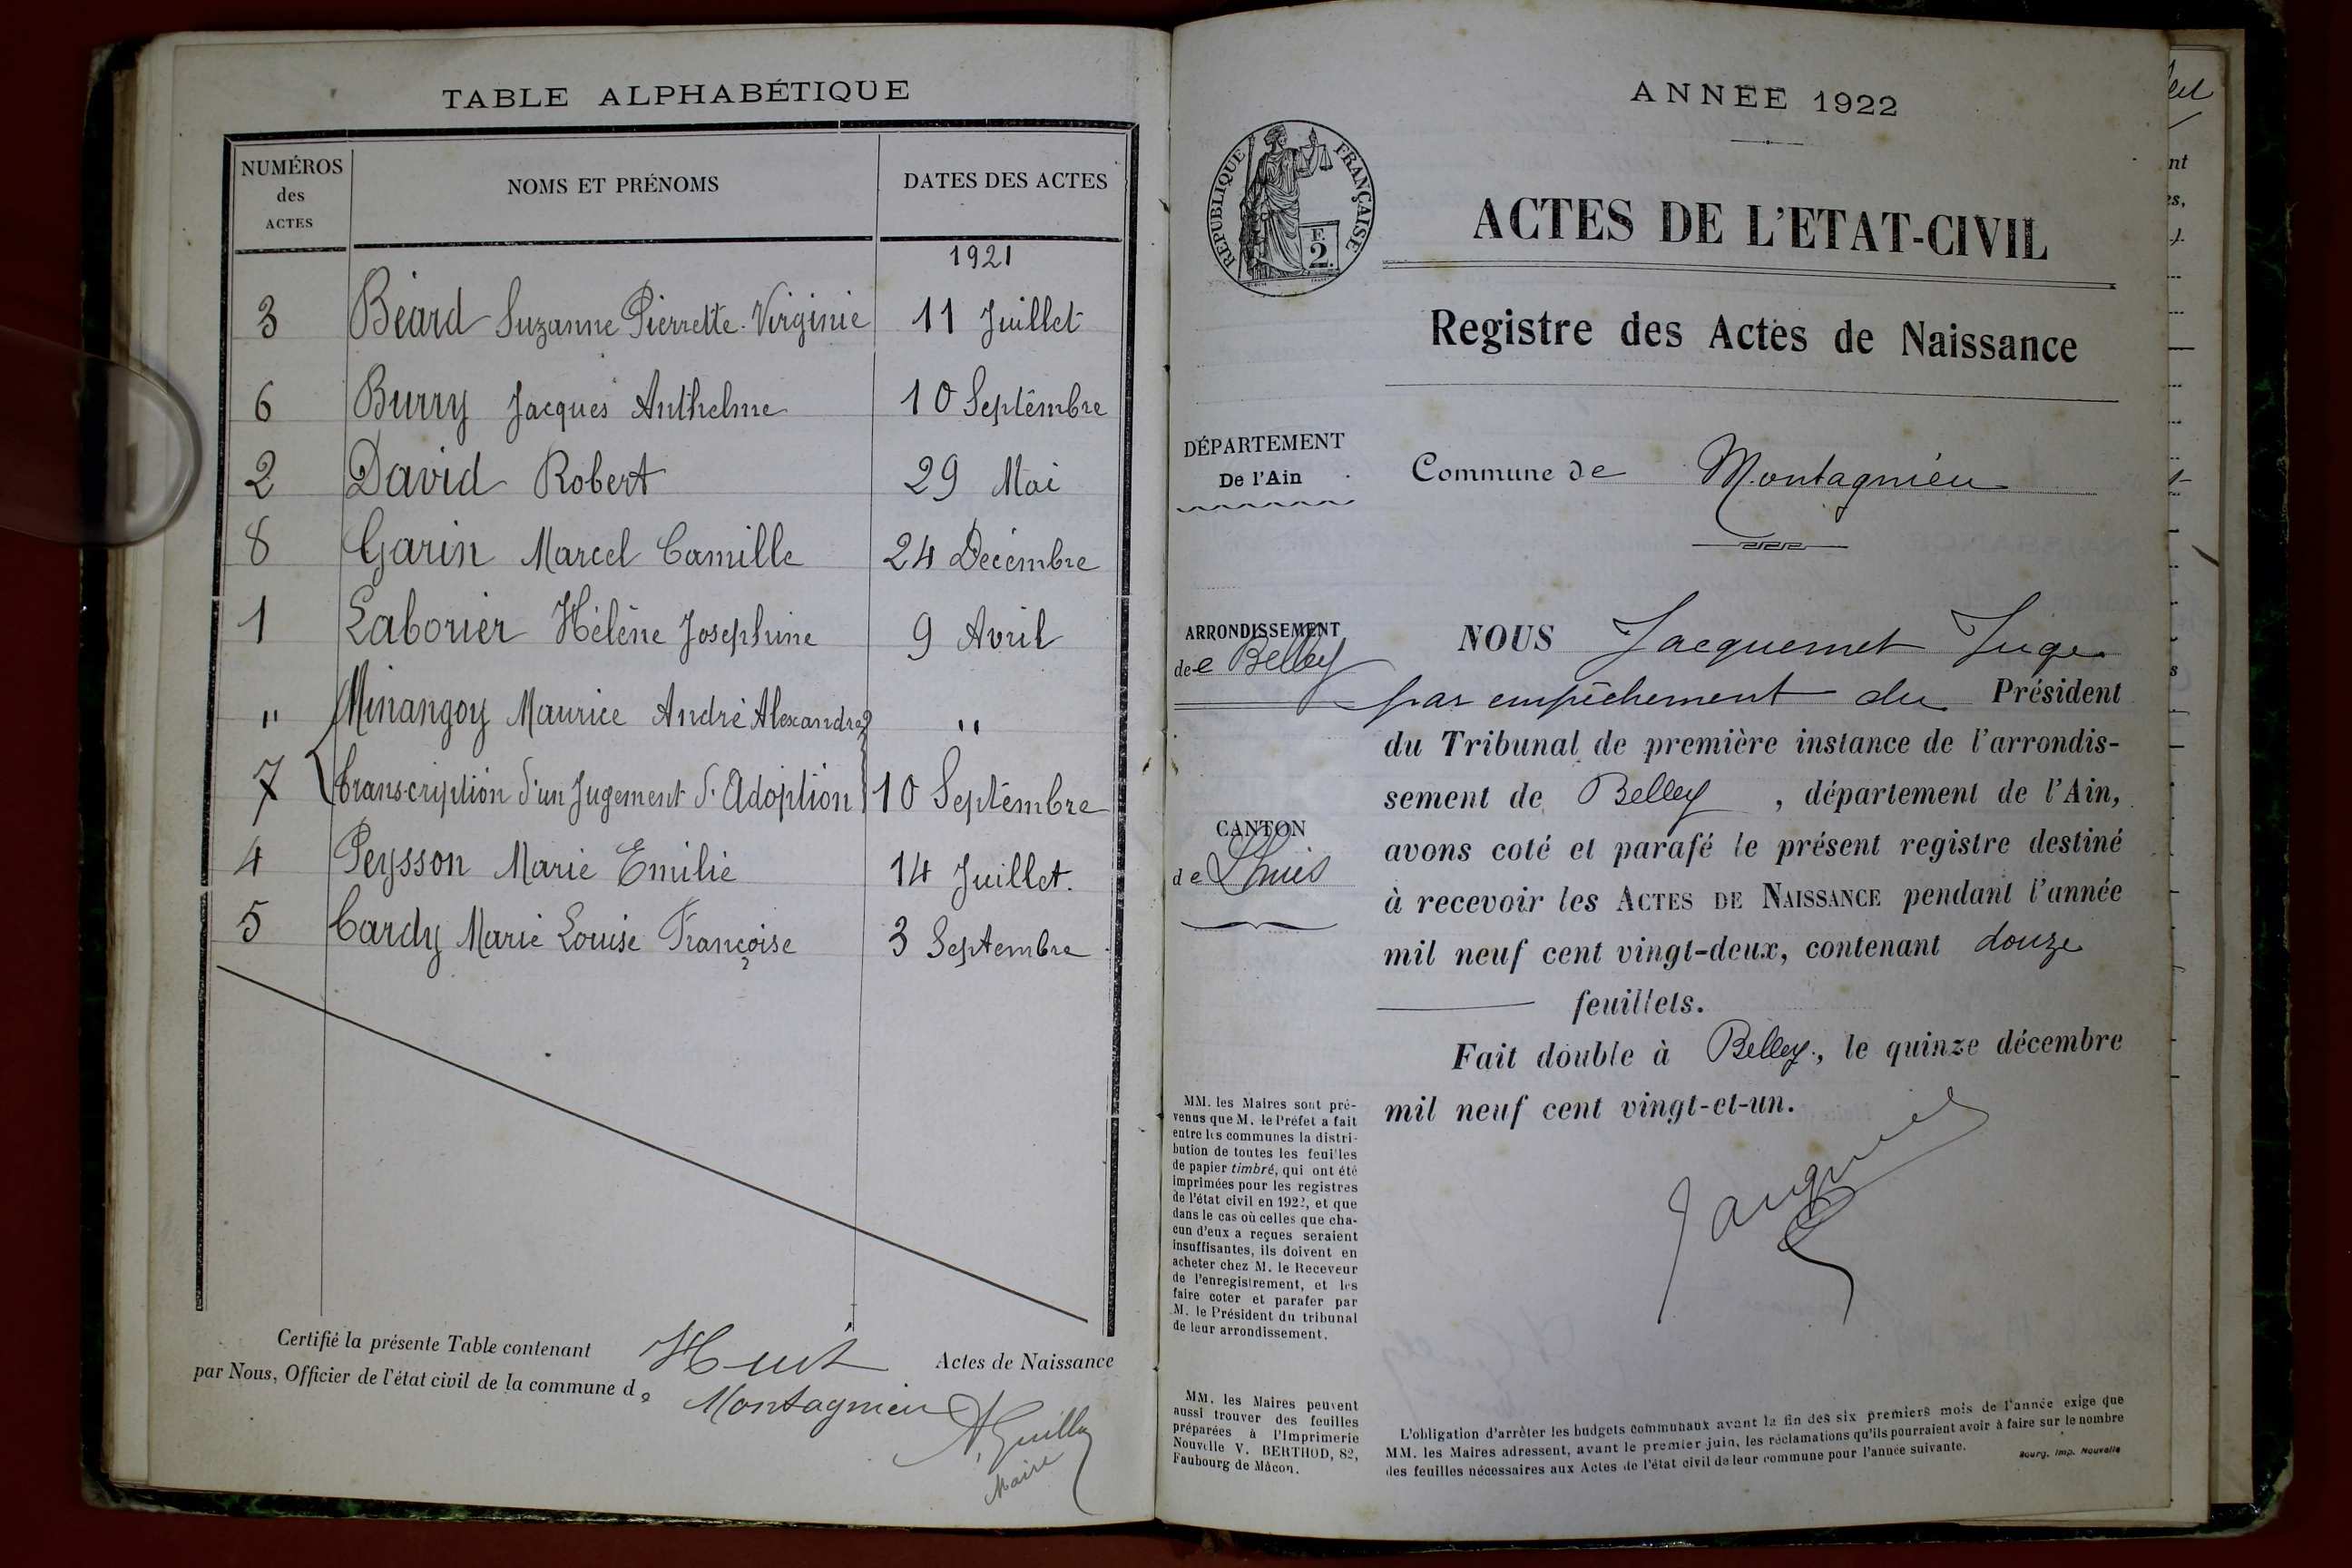 TABLE ALPHABÉTIQUE
NUMÉROS des ACTES
NOMS ET PRÉNOMS
DATES DES ACTES
1921
3 Béard Suzanne Pierrette Virginie 11 Juillet
6 Burry Jacques Anthelme 10 Septembre
2 David Robert 29 Mai
8 Garin Marcel Camille 24 Décembre
1 Laborier Hélène Josephine 9 Avril
" Minangoy Maurice André Alexandre "
7 Transcription d'un Jugement d'Adoption 10 Septembre
4 Peysson Marie Emilie 14 Juillet.
5 Tardy Marie Louise Françoise 3 Septembre
Certifié la présente Table contenant Huit Actes de Naissance
par Nous, Officier de l'état civil de la commune de Montagnieu
A. Guilloz
Maire
ANNÉE 1922
RÉPUBLIQUE FRANÇAISE
F.
2.
ACTES DE L'ETAT-CIVIL
Registre des Actes de Naissance
DÉPARTEMENT
De l'Ain
Commune de Montagnieu
ARRONDISSEMENT
de Belley
CANTON
de Lhuis
NOUS Jacquemet Juge
par empêchement du Président
du Tribunal de première instance de l'arrondis-
sement de Belley, département de l'Ain,
avons coté et parafé le présent registre destiné
à recevoir les ACTES DE NAISSANCE pendant l'année
mil neuf cent vingt-deux, contenant douze
feuillets.
Fait double à Belley, le quinze décembre
mil neuf cent vingt-et-un.
MM. les Maires sont pré-
venus que M. le Préfet a fait
entre les communes la distri-
bution de toutes les feuilles
de papier timbré, qui ont été
imprimées pour les registres
de l'état civil en 1922, et que
dans le cas où celles que cha-
cun d'eux a reçues seraient
insuffisantes, ils doivent en
acheter chez M. le Receveur
de l'enregistrement, et les
faire coter et parafer par
M. le Président du tribunal
de leur arrondissement.
MM. les Maires peuvent
aussi trouver des feuilles
préparées à l'Imprimerie
Nouvelle V. BERTHOD, 82,
Faubourg de Mâcon.
L'obligation d'arrêter les budgets communaux avant la fin des six premiers mois de l'année exige que
MM. les Maires adressent, avant le premier juin, les réclamations qu'ils pourraient avoir à faire sur le nombre
des feuilles nécessaires aux Actes de l'état civil de leur commune pour l'année suivante.
Bourg, Imp. Nouvelle